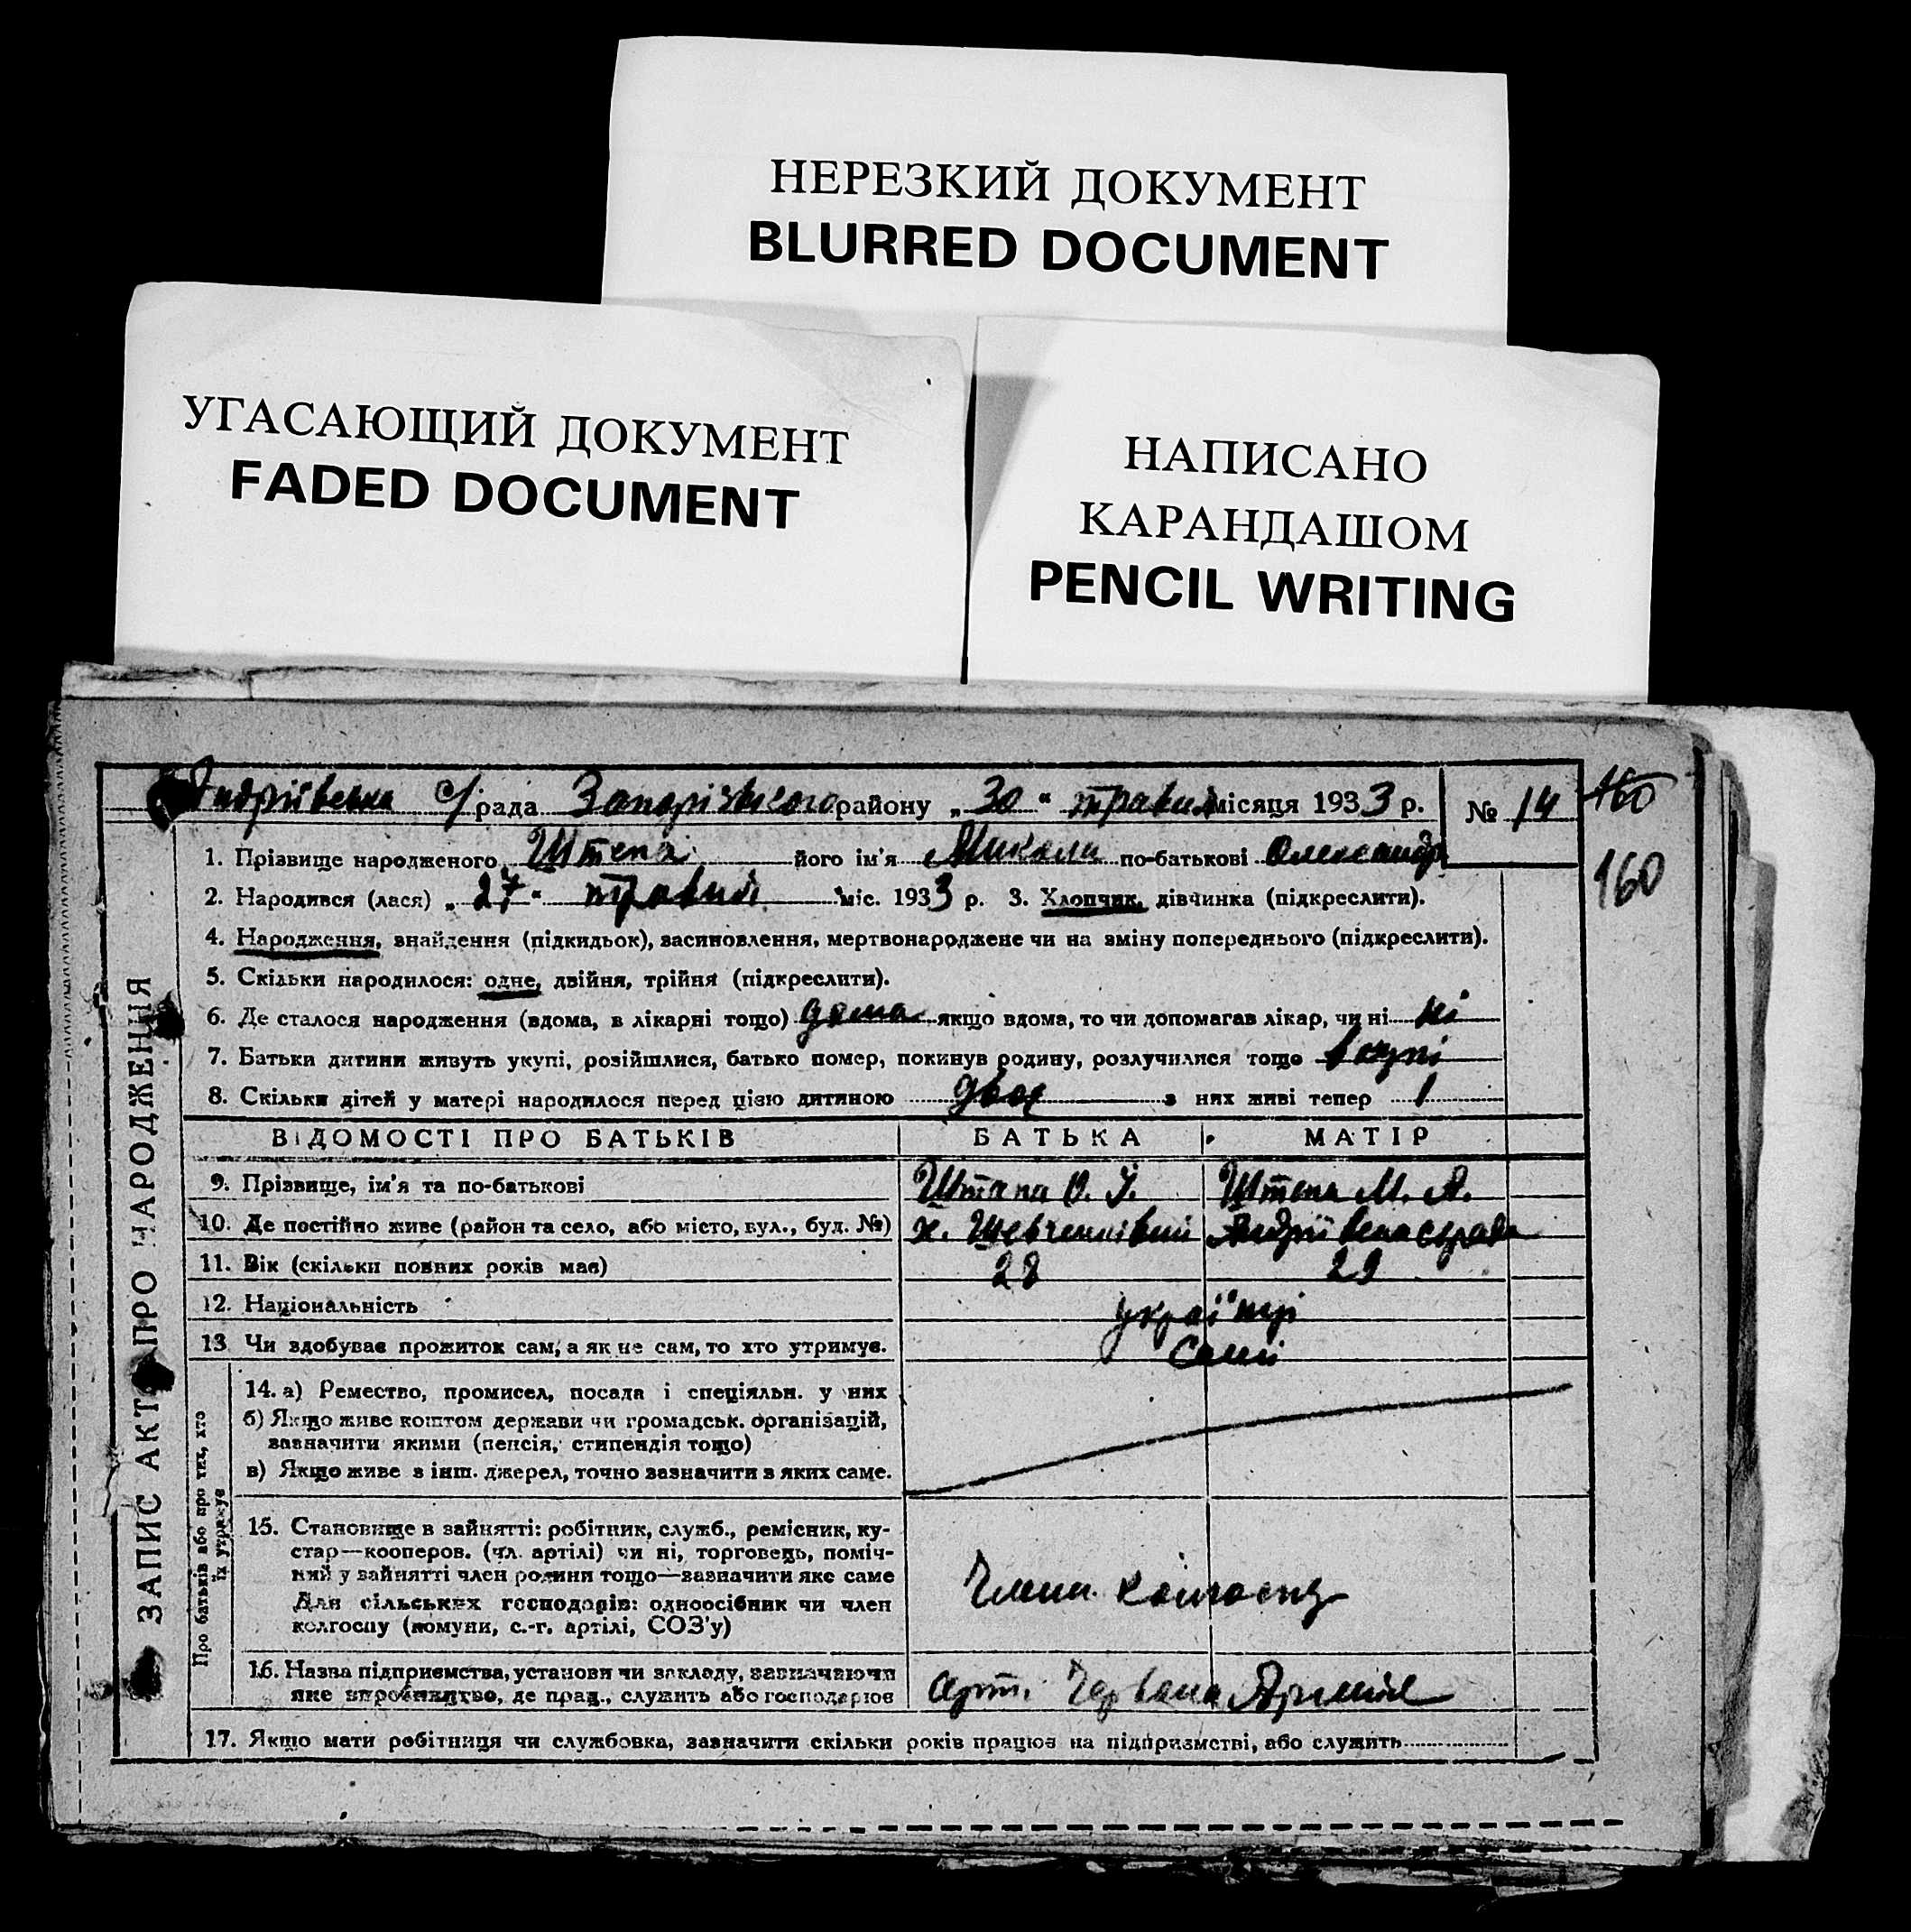 НЕРЕЗКИЙ ДОКУМЕНТ
BLURRED DOCUMENT
УГАСАЮЩИЙ ДОКУМЕНТ
FADED DOCUMENT
НАПИСАНО
КАРАНДАШОМ
PENCIL WRITING
Андріївська с/рада Запорізького району „30“ травня місяця 1933 р. № 14 160
1. Прізвище народженого Штепа його ім'я Микола по-батькові Олександр 160
2. Народився (лася) „27“ травня міс. 1933 р. 3. Хлопчик, дівчинка (підкреслити).
4. Народження, знайдення (підкидьок), засиновлення, мертвонароджене чи на зміну попереднього (підкреслити).
5. Скільки народилося: одне, двійня, трійня (підкреслити).
6. Де сталося народження (вдома, в лікарні тощо) дома якщо вдома, то чи допомагав лікар, чи ні ні
7. Батьки дитини живуть укупі, розійшлися, батько помер, покинув родину, розлучилися тощо вкупі
8. Скільки дітей у матері народилося перед цією дитиною двоє з них живі тепер 1
ЗАПИС АКТУ ПРО НАРОДЖЕННЯ
ВІДОМОСТІ ПРО БАТЬКІВ БАТЬКА МАТІР
9. Прізвище, ім'я та по-батькові Штепа О. І. Штепа М. А.
10. Де постійно живе (район та село, або місто, вул., буд. №) х. Шевченківський Андріївська с/рада
11. Вік (скільки повних років має) 28 29
12. Національність українці
13 Чи здобуває прожиток сам, а як не сам, то хто утримує. Самі
Про батьків або про тих, хто
їх утримує
14. а) Ремество, промисел, посада і спеціяльн. у них
б) Якщо живе коштом держави чи громадськ. організацій,
зазначити якими (пенсія, стипендія тощо)
в) Якщо живе з інш. джерел, точно зазначити з яких саме.
15. Становище в зайнятті: робітник, служб., ремісник, ку-
стар—кооперов. (чл. артілі) чи ні, торговець, поміч-
ний у зайнятті член родини тощо—зазначити яке саме
Для сільських господарів: одноосібник чи член
колгоспу (комуни, с.-г. артілі, СОЗ'у)
Члени колгоспу
16. Назва підприємства, установи чи закладу, зазначаючи
яке виробництво, де прац., служить або господарює
арт. Червона Армія
17. Якщо мати робітниця чи службовка, зазначити скільки років працює на підприємстві, або служить